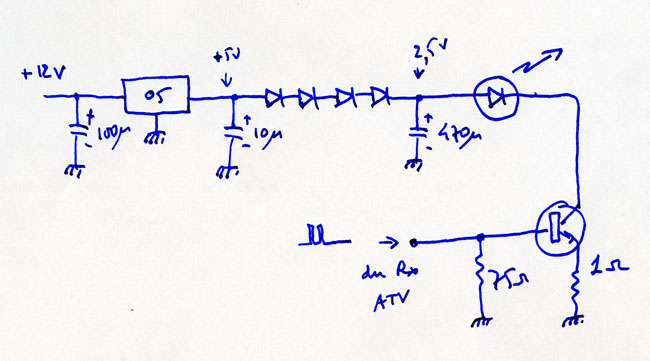 +12V
05
+5V
2,5V
+
100µ
-
+
10µ
-
+
470µ
-
du Rx
ATV
75Ω
1Ω